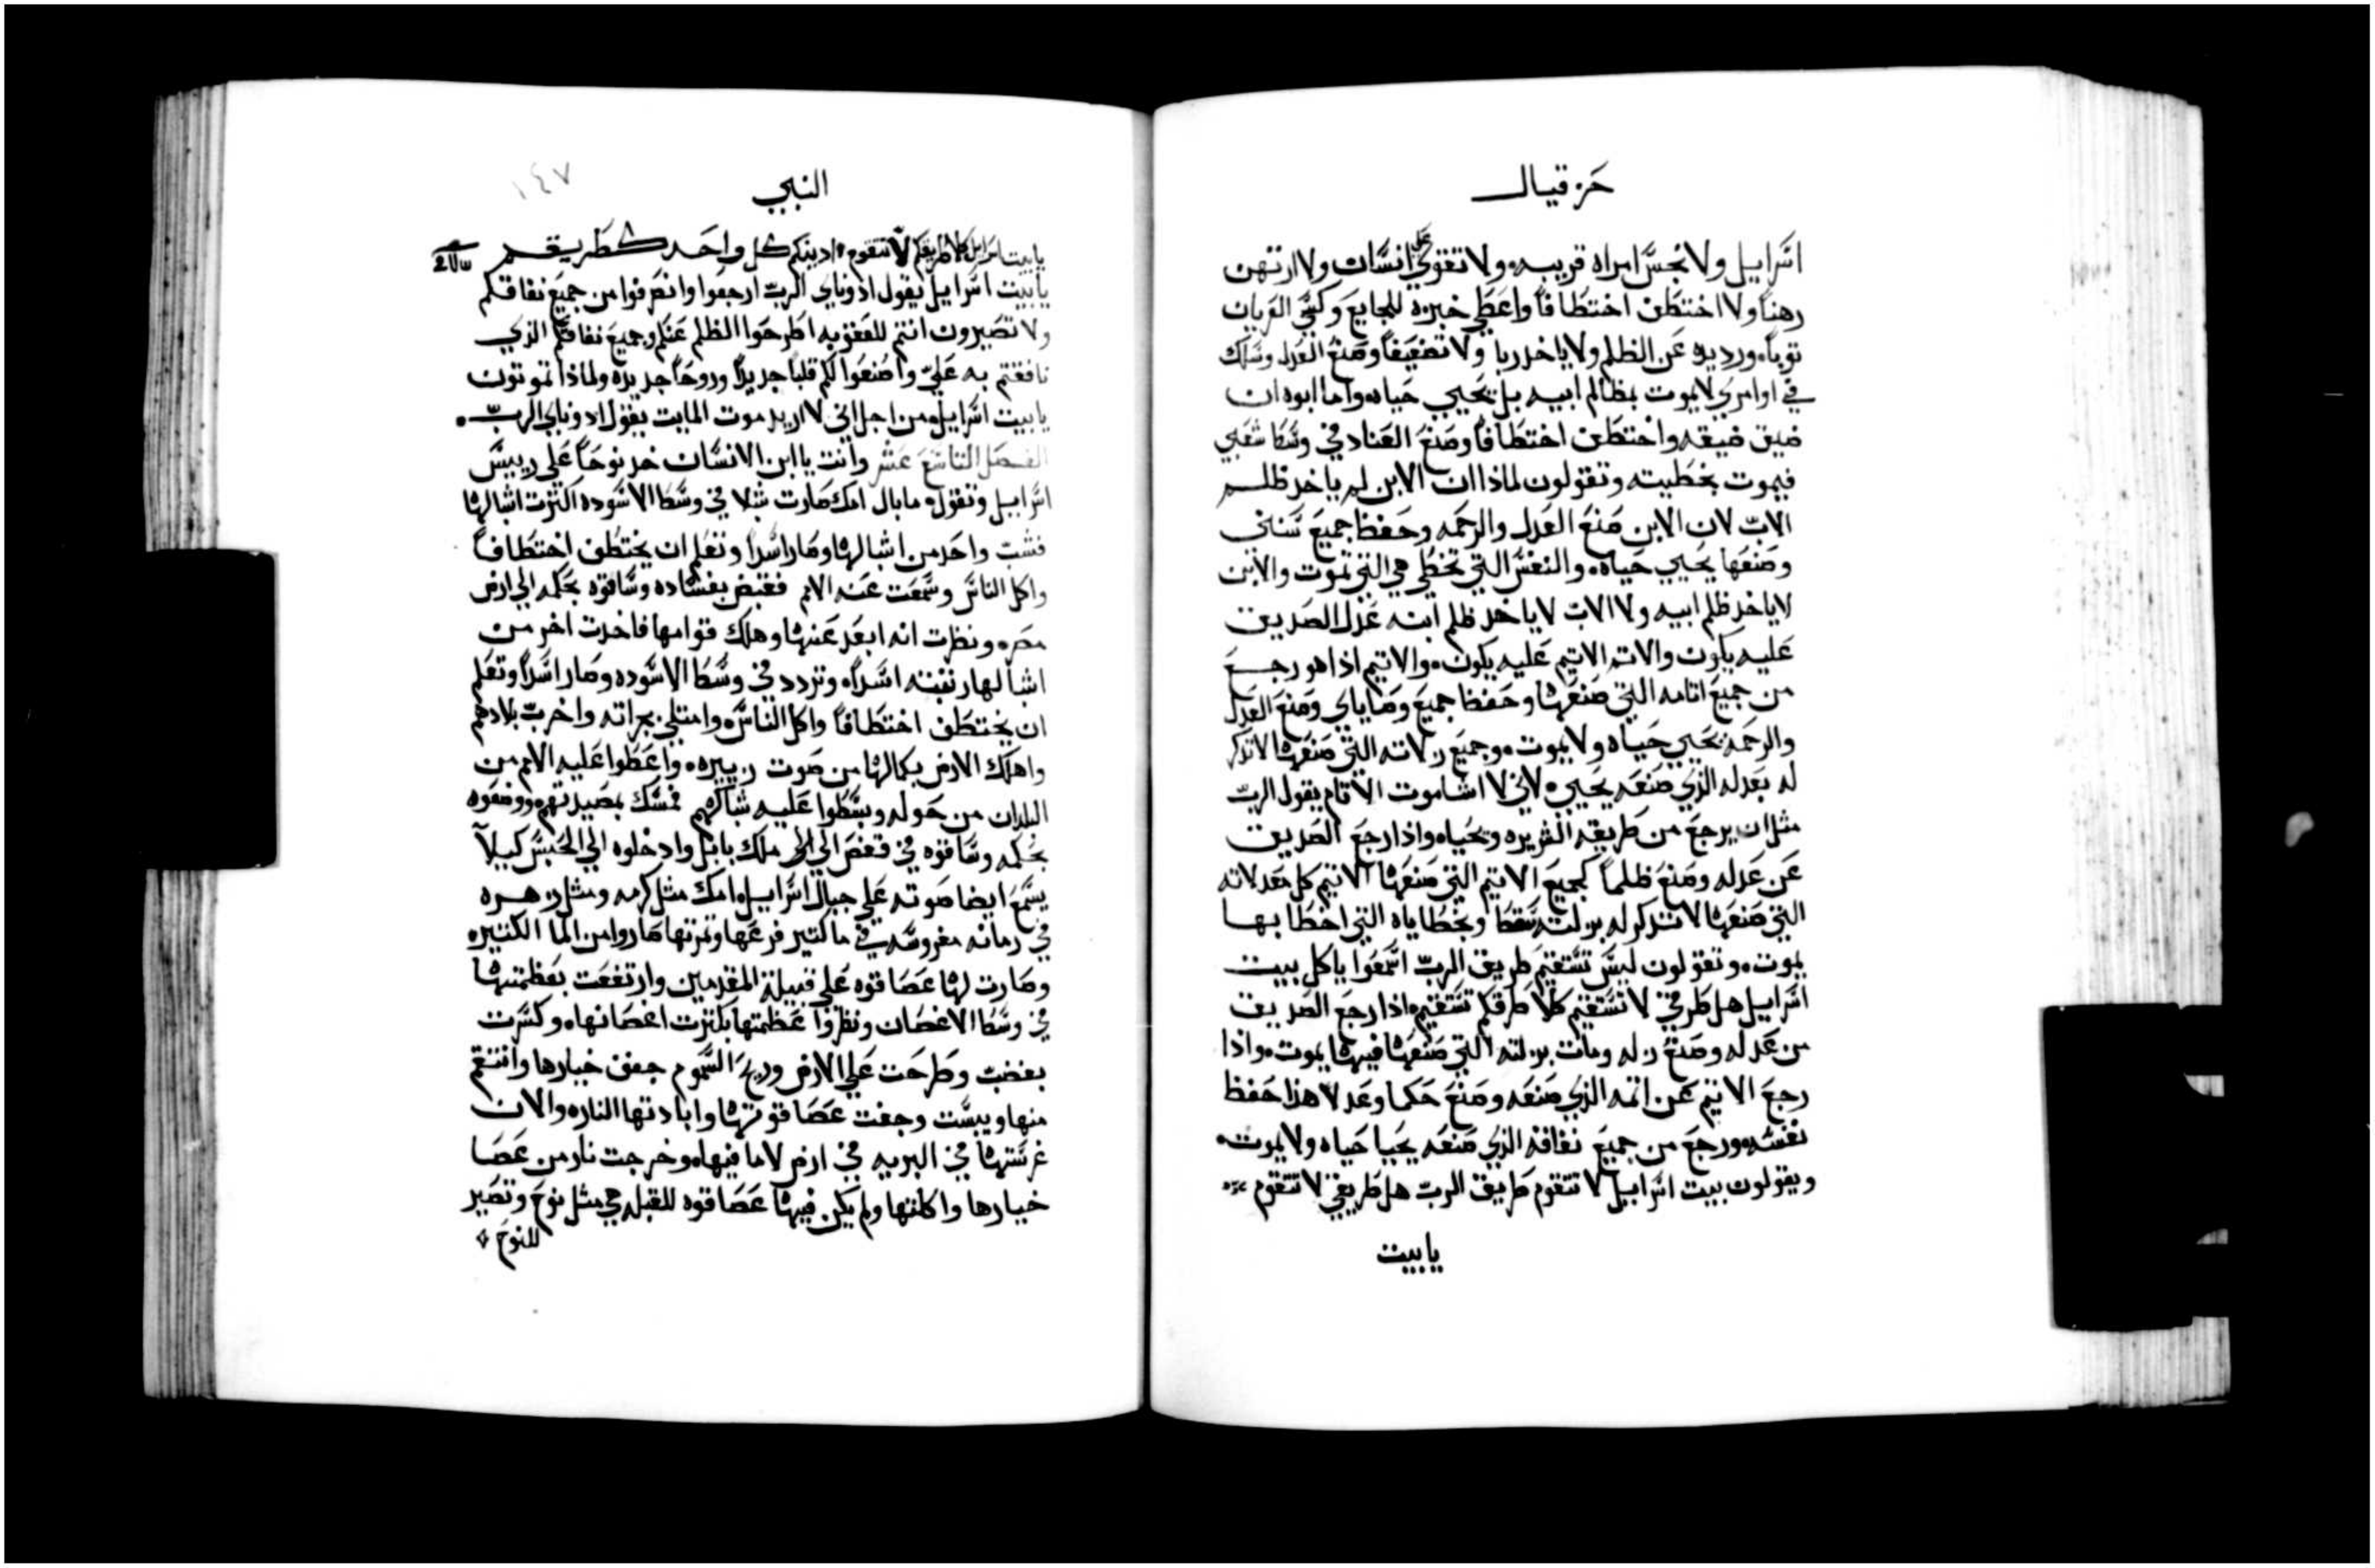 حزقيال
اسرايل ولا نجس امراه قريبه ولا تقوي علي انسان ولا ارتهن
رهناً ولا اختطف اختطافاً واعطي خبزه للجايع وكسي العريان
توباً ورد يده عن الظلم ولا ياخد ربا ولا تضعيفاً وصنع العدل وسلك
في اوامري لا يموت بمظالم ابيه بل يحيي حياه واما ابوه ان
ضيق ضيقه واختطف اختطافاً وصنع العناد في وسط شعبي
فيموت بخطيته وتقولون لماذا ان الابن لم ياخد ظلم
الاب لان الابن صنع العدل والرحمه وحفظ جميع سنني
وصنعها يحيي حياه والنفس التي تخطي هي التي تموت والابن
لا ياخد ظلم ابيه ولا الاب لا ياخد ظلم ابنه عدل الصديق
عليه يكون واثم الاتيم عليه يكون والاتيم اذا هو رجع
من جميع اتامه التي صنعها وحفظ جميع وصاياي وصنع العدل
والرحمه يحيي حياه ولا يموت وجميع زلاته التي صنعها لا تذكر
له بعدله الذي صنعه يحيي لاني لا اشا موت الاتام يقول الرب
مثل ان يرجع من طريقه الشريره ويحياه واذا رجع الصديق
عن عدله وصنع ظلماً كجميع الاتيم التي صنعها الاتيم كل معدلاته
التي صنعها لا تذكر له بزلته سقط وبخطاياه التي اخطا بها
يموت وتقولون ليس تستقيم طريق الرب اسمعوا يا كل بيت
اسرايل هل طرقي لا تستقيم كلا طرقكم تستقيم اذا رجع الصديق
من عدله وصنع زله ومات بزلته التي صنعها فيها يموت واذا
رجع الاتيم عن اتمه الذي صنعه وصنع حكما وعدلا هذا حفظ
نفسه ورجع من جميع نفاقه الذي صنعه يحيا حياه ولا يموت
ويقولون بيت اسرايل لا تتقوم طريق الرب هل طريقي لا تتقوم
يا بيت
النبي
١٤٧
يا بيت اسرايل كلا طريقكم لا تتقوم ادينكم كل واحد كطريقه
يا بيت اسرايل يقول ادوناي الرب ارجعوا وانصرفوا من جميع نفاقكم
ولا تصيرون انتم للعقوبه اطرحوا الظلم عنكم وجميع نفاقكم الذي
نافقتم به علي واصنعوا لكم قلباً جديداً وروحاً جديده ولماذا تموتون
يا بيت اسرايل من اجل اني لا اريد موت المايت يقول ادوناي الرب
الفصل التاسع عشر وانت يا ابن الانسان خد نوحاً علي رييس
اسرايل وتقول ما بال امك صارت شبلا في وسط الاسوده اكثرت اشبالها
فشب واحد من اشبالها وصار اسداً وتعلم ان يختطف اختطافاً
واكل الناس وسمعت عنه الامم فقبض بفساده وساقوه بحكمه الي ارض
مصر ونظرت انه ابعد عنها وهلك قوامها فاخدت اخر من
اشبالها رتبته اسداً وتردد في وسط الاسوده وصار اسداً وتعلم
ان يختطف اختطافاً واكل الناس وامتلي بجراته واخرب بلادهم
واهلك الارض بكمالها من صوت زييره واعطوا عليه الامم من
البلدان من حوله وبسطوا عليه شباكهم فمسك بمصيدتهم ووضعوه
بحكمه وساقوه في قفص الي ملك بابل وادخلوه الي الحبس كيلا
يسمع ايضا صوته علي جبال اسرايل امك مثل كرمه ومثل زهره
في رمانه مغروسه في ما كتير فرعها وتمرتها صاروا من الما الكتيره
وصارت لها عصا قوه علي قبيلة المقدمين وارتفعت بعظمتها
في وسط الاغصان ونظروا عظمتها بكترت اغصانها وكسرت
بغضب وطرحت علي الارض وريح السموم جفف خيارها وانتقم
منها ويبست وجفت عصا قوتها وابادتها النار والان
غرستها في البريه في ارض لا ما فيها وخرجت نار من عصا
خيارها واكلتها ولم يكن فيها عصا قوه للقبله هي مثل نوح وتصير
للنوح